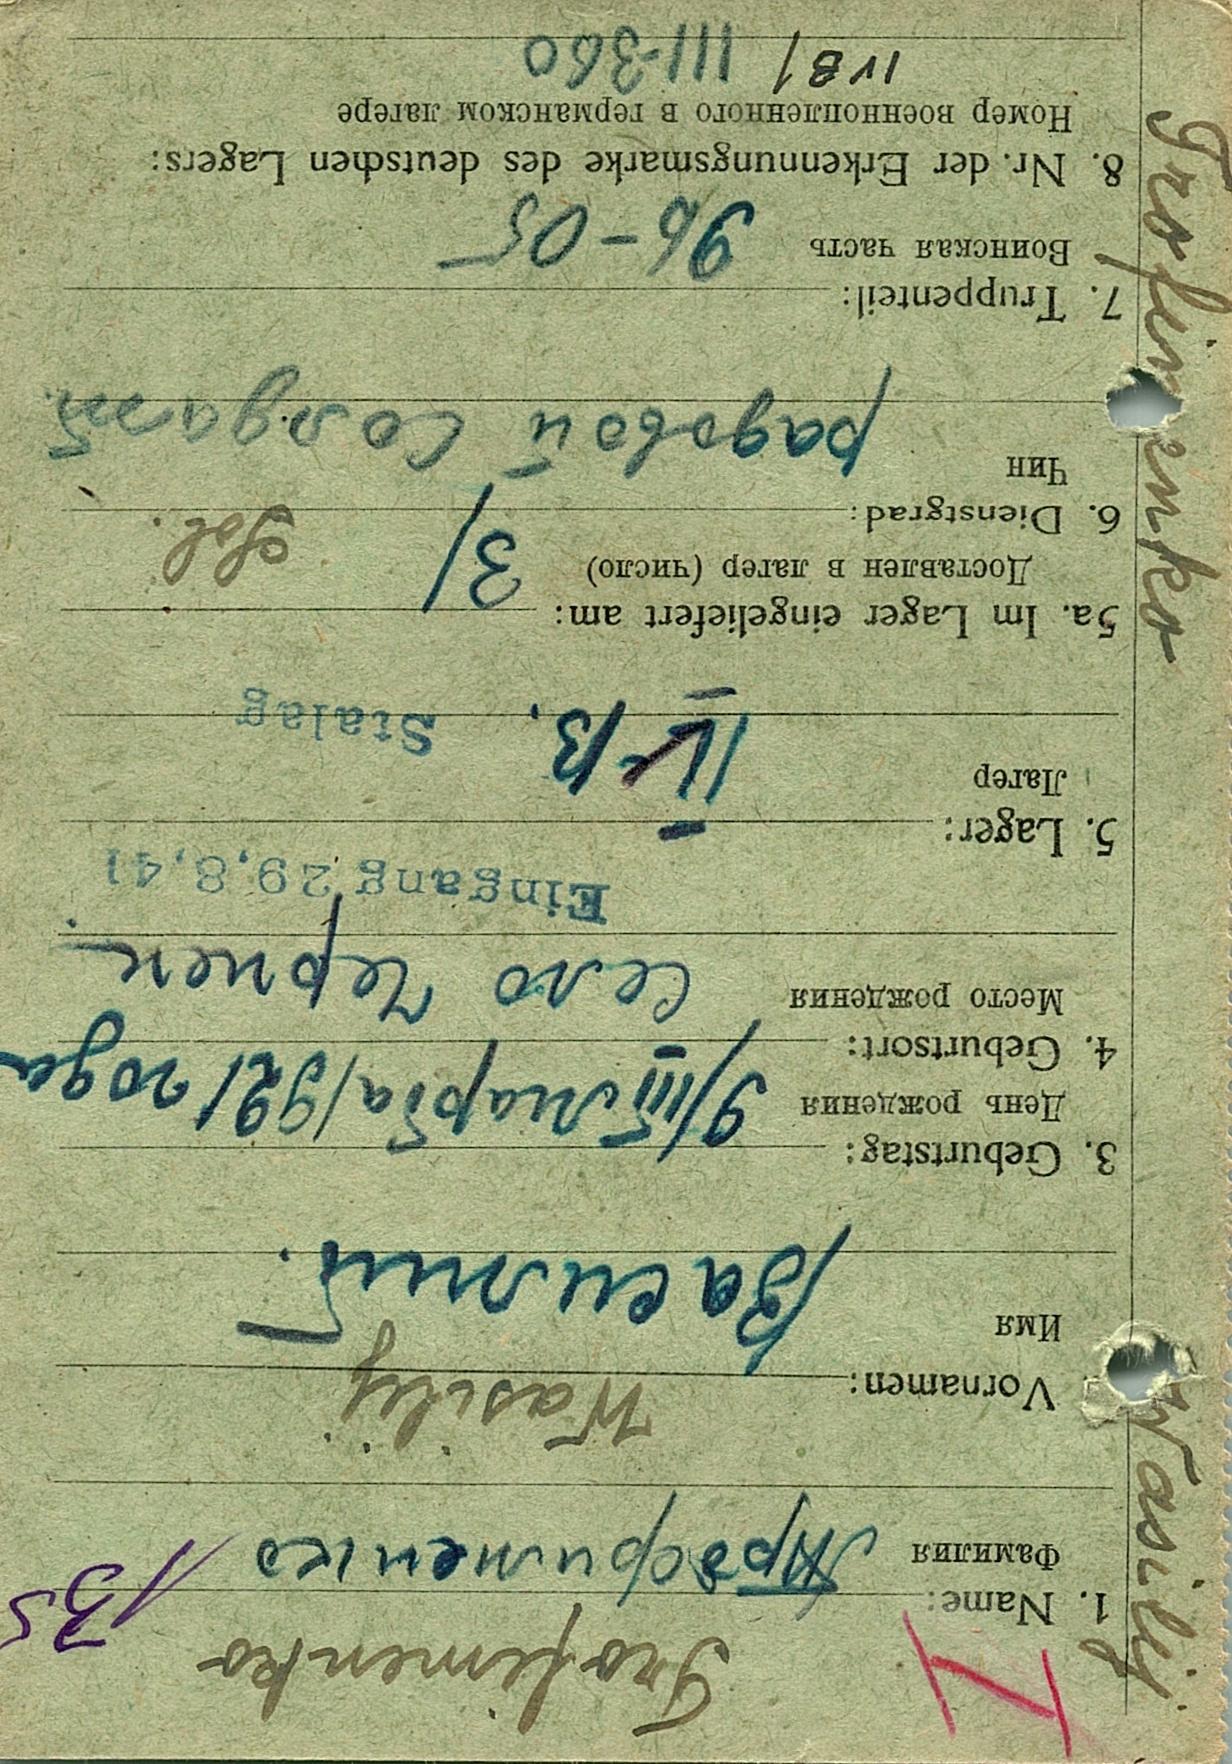 Trofimenko
1. Name: Трофименко
Фамилия
Wasilij
Vornamen:
Имя Василий.
3. Geburtstag: 9/III Марта 1921 года
День рождения
4. Geburtsort:
Место рождения Село Черпен.
Eingang 29.8.41
5. Lager:
Лагер IV B. Stalag
5a. Im Lager eingeliefert am: 3/
Доставлен в лагер (число)
6. Dienstgrad: Sol.
Чин рядовой Солдат.
7. Truppenteil:
Воинская часть 96-05
8. Nr. der Erkennungsmarke des deutschen Lagers:
Номер военнопленного в германском лагере
IV B/ 111360
Wasilij Trofimenko